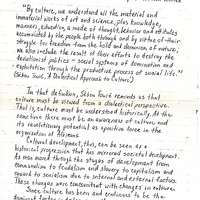 "By culture, we understand all the material and
immaterial works of art and science, plus knowledge,
manners, education, a mode of thought, behavior and attitudes
accumulated by the people both through and by virtue of their
struggle for freedom from the hold and dominion of nature;
we also include the result of their efforts to destroy the
deviationist politics - social systems of domination and
exploitation through the productive process of social life."
(Sékou Touré, A Dialectical Approach to Culture)
In that definition, Sékou Touré reminds us that
culture must be viewed from a dialectical perspective.
That is, culture must be understood historically. At the
same time there must be an awareness of culture and
its revolutionary potential as a positive force in the
organization of Africans.
Cultural development, this, can be seen as a
historical progression that has mirrored societal development.
As man moved through the stages of development from
communalism to feudalism and slavery to capitalism and
onward to socialism due to internal and external factors
These changes were concomitant with changes in culture.
Since culture has been and continues to be the